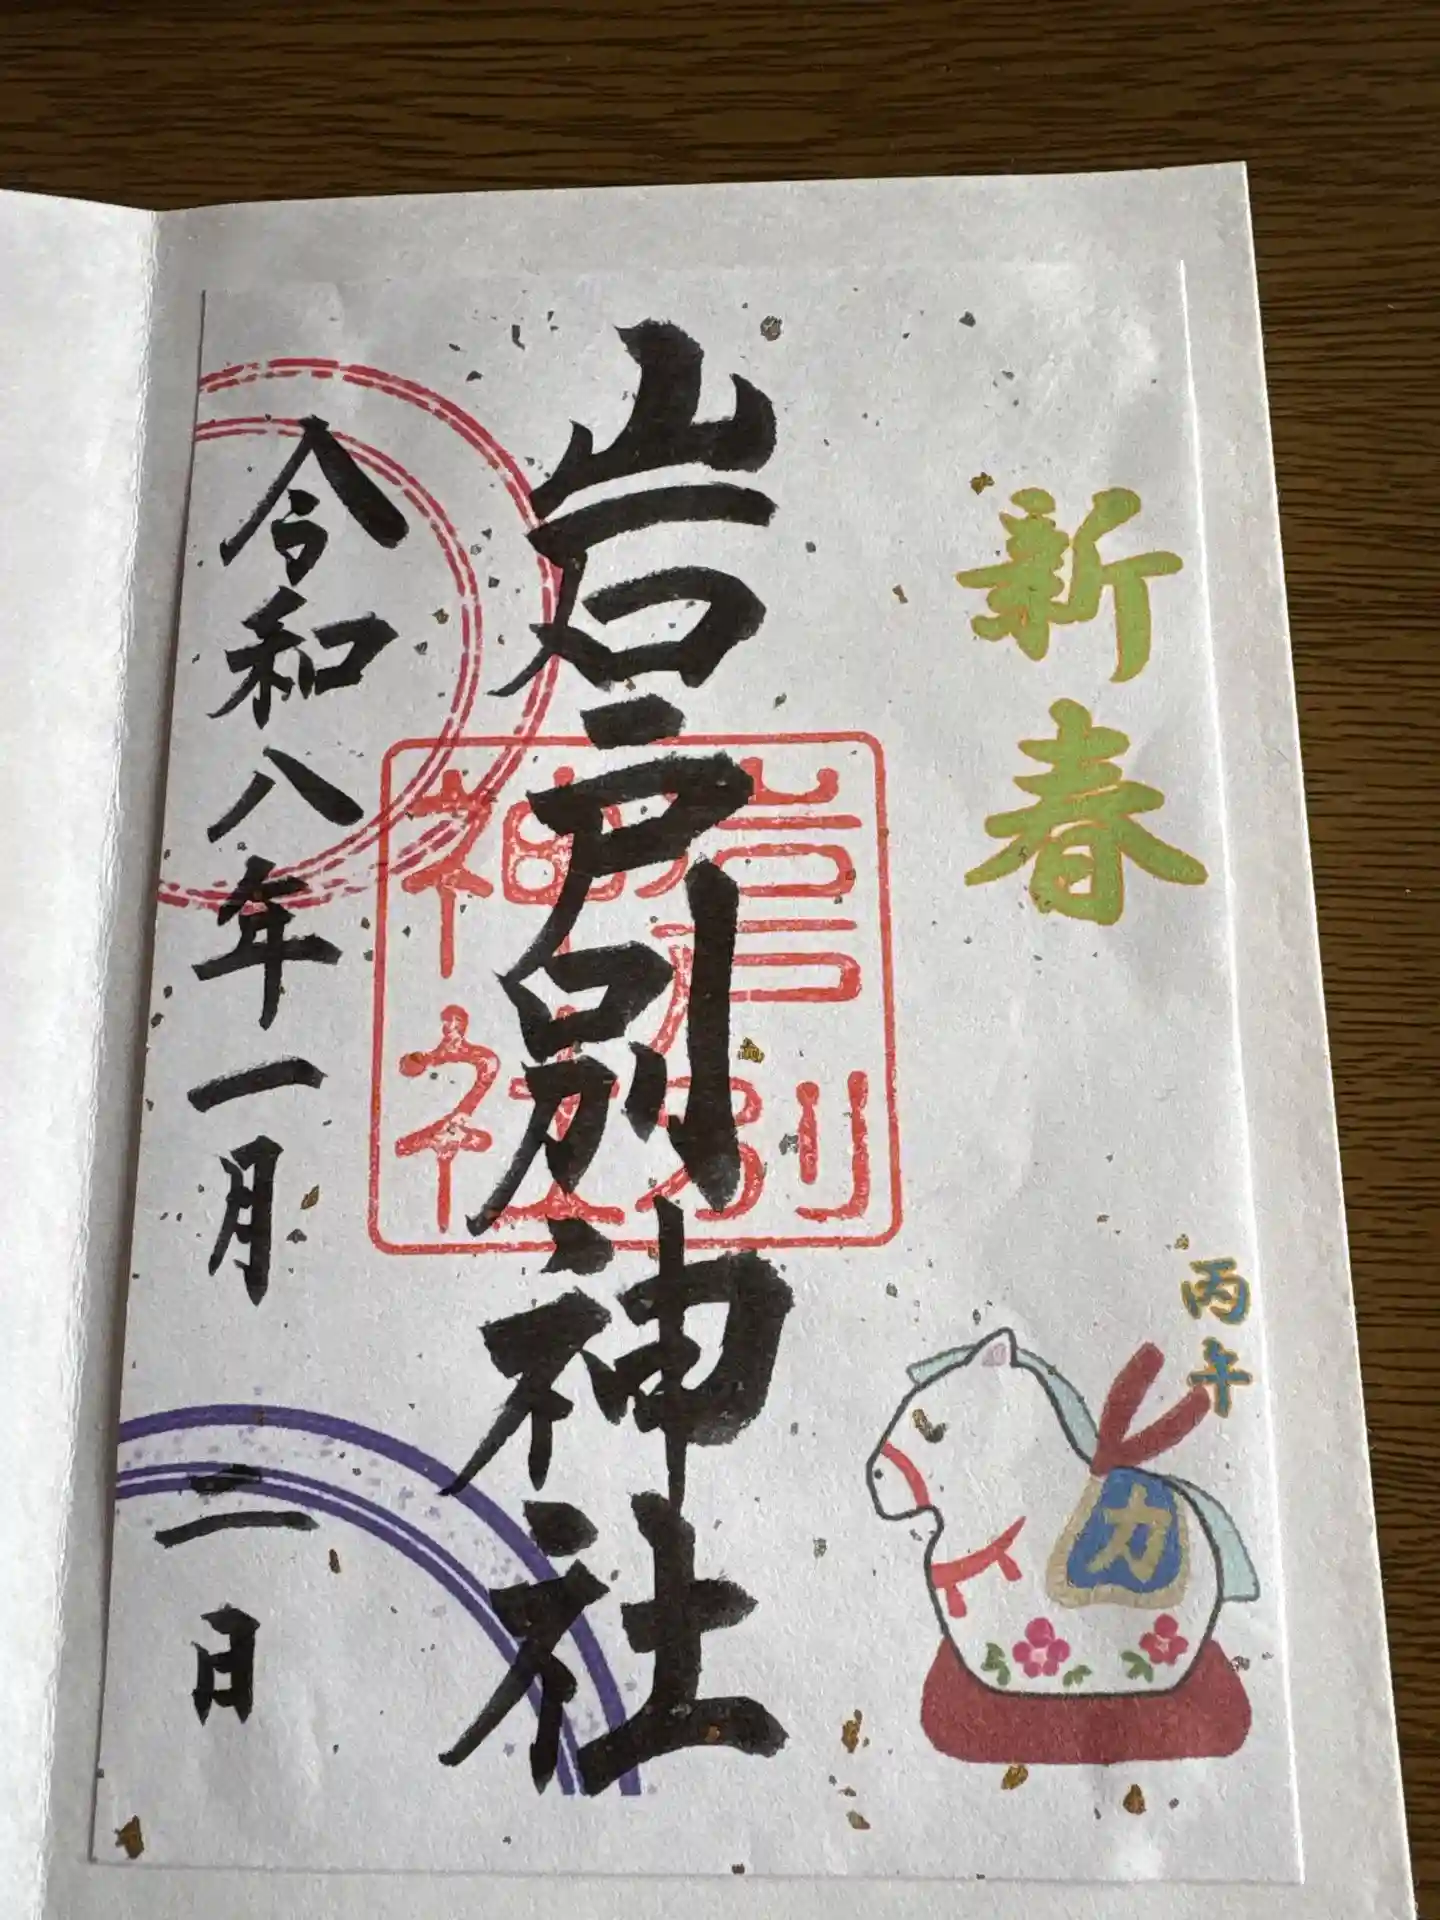 新春
丙午
力
岩戸別神社
岩戸別
神社
令和八年一月二日